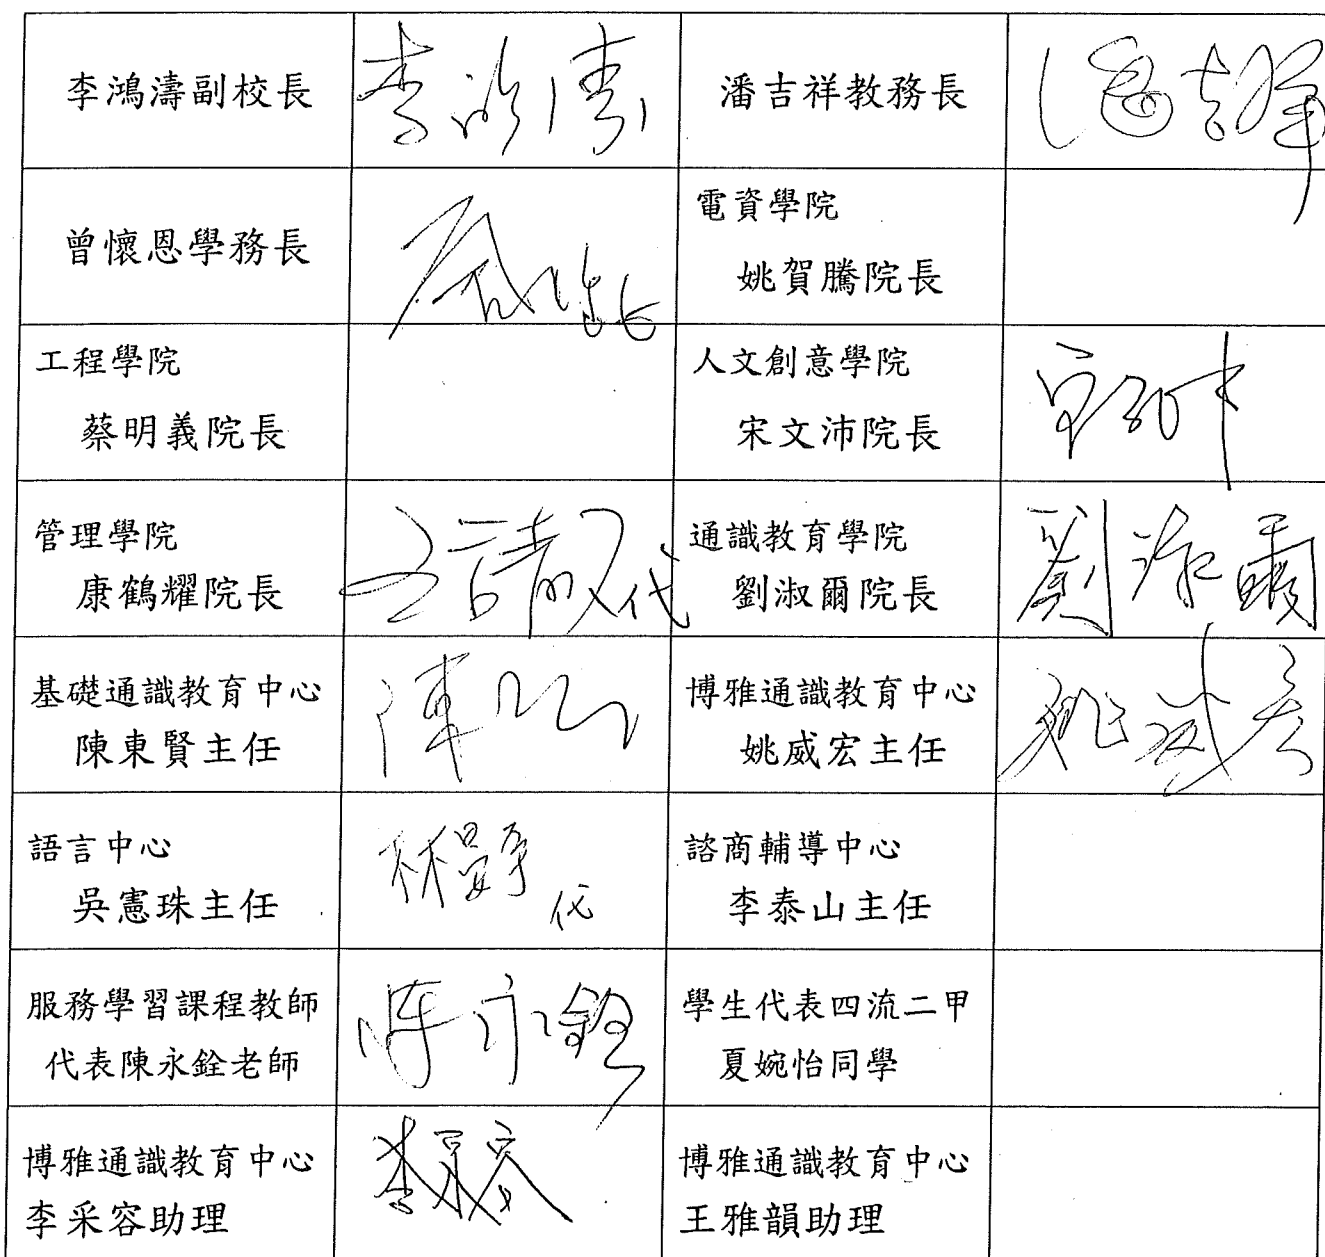 李鴻濤副校長
潘吉祥教務長
曾懷恩學務長
電資學院
姚賀騰院長
工程學院
蔡明義院長
人文創意學院
宋文沛院長
管理學院
康鶴耀院長
代
通識教育學院
劉淑爾院長
劉淑爾
基礎通識教育中心
陳東賢主任
博雅通識教育中心
姚威宏主任
語言中心
吳憲珠主任
代
諮商輔導中心
李泰山主任
服務學習課程教師
代表陳永銓老師
陳永銓
學生代表四流二甲
夏婉怡同學
博雅通識教育中心
李采容助理
李采容
博雅通識教育中心
王雅韻助理